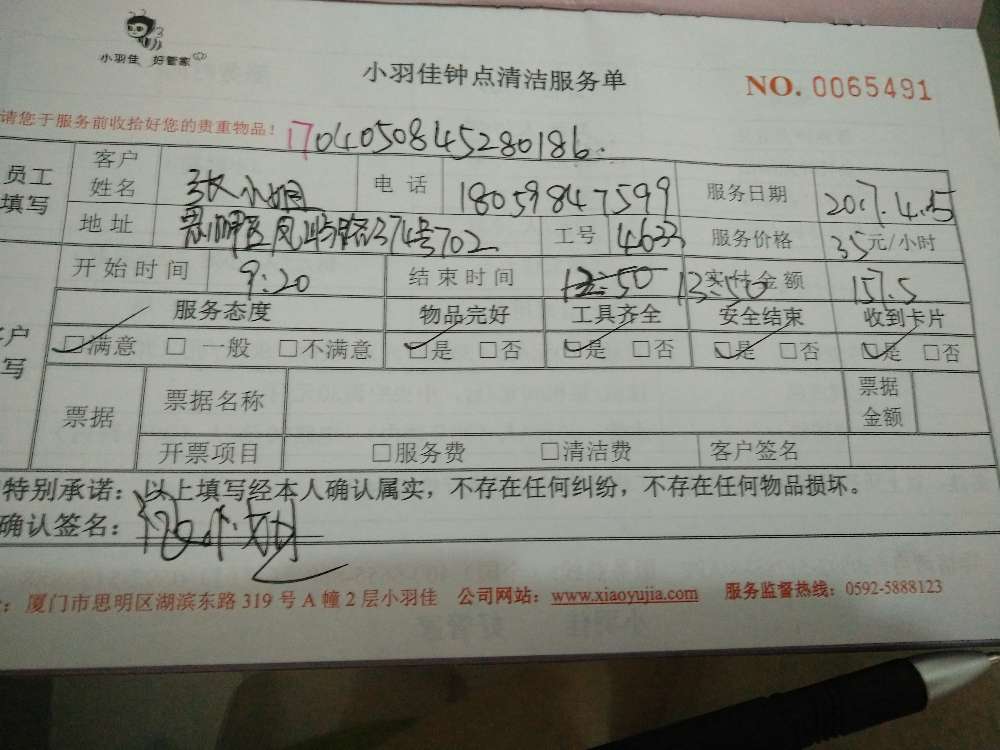 小羽佳 好管家
小羽佳钟点清洁服务单
NO. 0065491
请您于服务前收拾好您的贵重物品!
1704050845280186
员工填写 客户姓名 张小姐 电话 18059847599 服务日期 2017.4.15
地址 思明区凤屿路374号702 工号 4633 服务价格 35元/小时
开始时间 9:20 结束时间 13:50 实付金额 157.5
服务态度 物品完好 工具齐全 安全结束 收到卡片
☑满意 □一般 □不满意 ☑是 □否 ☑是 □否 ☑是 □否 ☑是 □否
票据 票据名称 票据金额
开票项目 □服务费 □清洁费 客户签名
特别承诺:以上填写经本人确认属实,不存在任何纠纷,不存在任何物品损坏。
确认签名:
厦门市思明区湖滨东路319号A幢2层小羽佳 公司网站:www.xiaoyujia.com 服务监督热线:0592-5888123